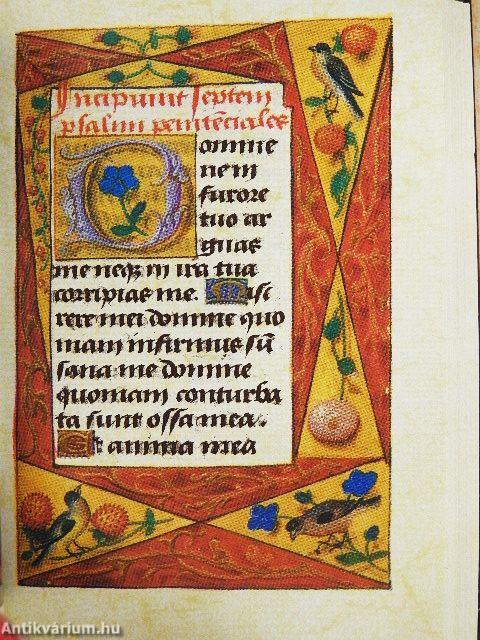 Incipiunt septem
psalmi penitenciales
Domine
ne in
furore
tuo ar
guas
me neqz in ira tua
corripias me. Mise
rere mei domine quo
niam infirmus sū
sana me domine
quoniam conturba
ta sunt ossa mea.
Et anima mea
Antikvárium.hu